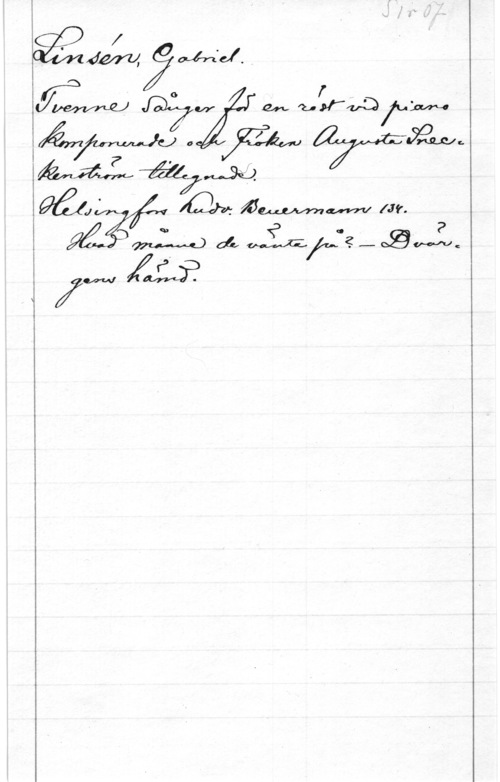 S 1 r 07
Linsén, Gabriel.
Tvenne Sånger för en röst vid piano
komponerade och Fröken Augusta Snec=
kenström tillegnade.
Helsingfors Ludv. Beuermann 134.
Hvad månne de vänta på? – Dvär=
gens hämd.